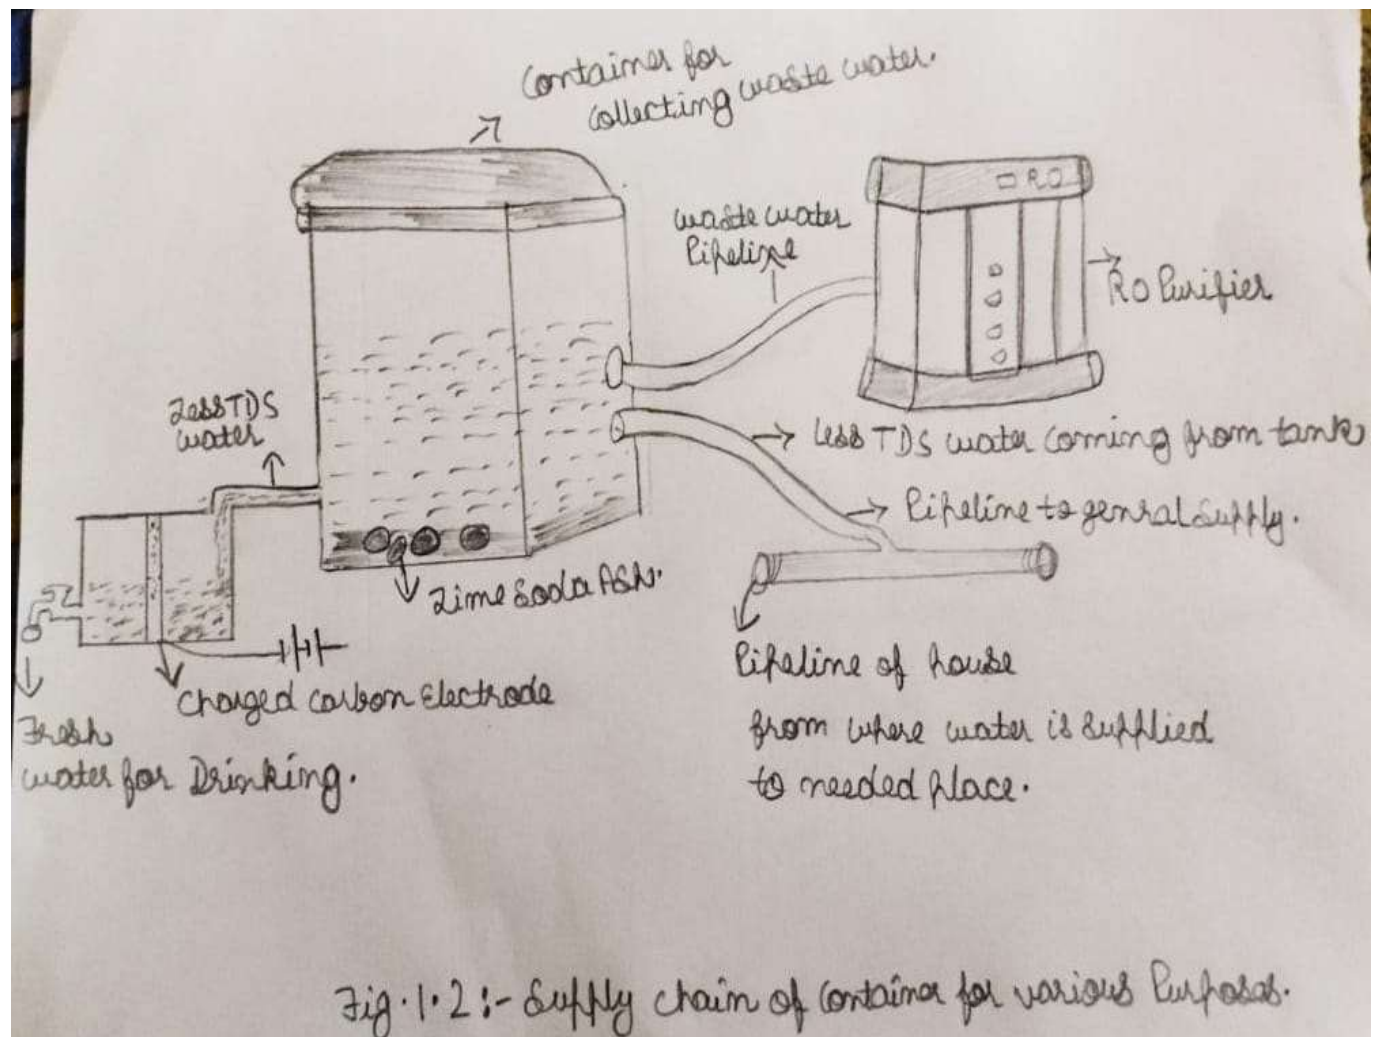 Container for
collecting waste water.
RO
waste water
Pipeline
RO Purifier
Less TDS
water
Less TDS water coming from tank
Pipeline to genral Supply.
Lime Soda Ash.
Pipeline of house
from where water is supplied
to needed place.
Charged carbon Electrode
Fresh
water for Drinking.
Fig. 1.2 :- Supply chain of container for various Purposas.